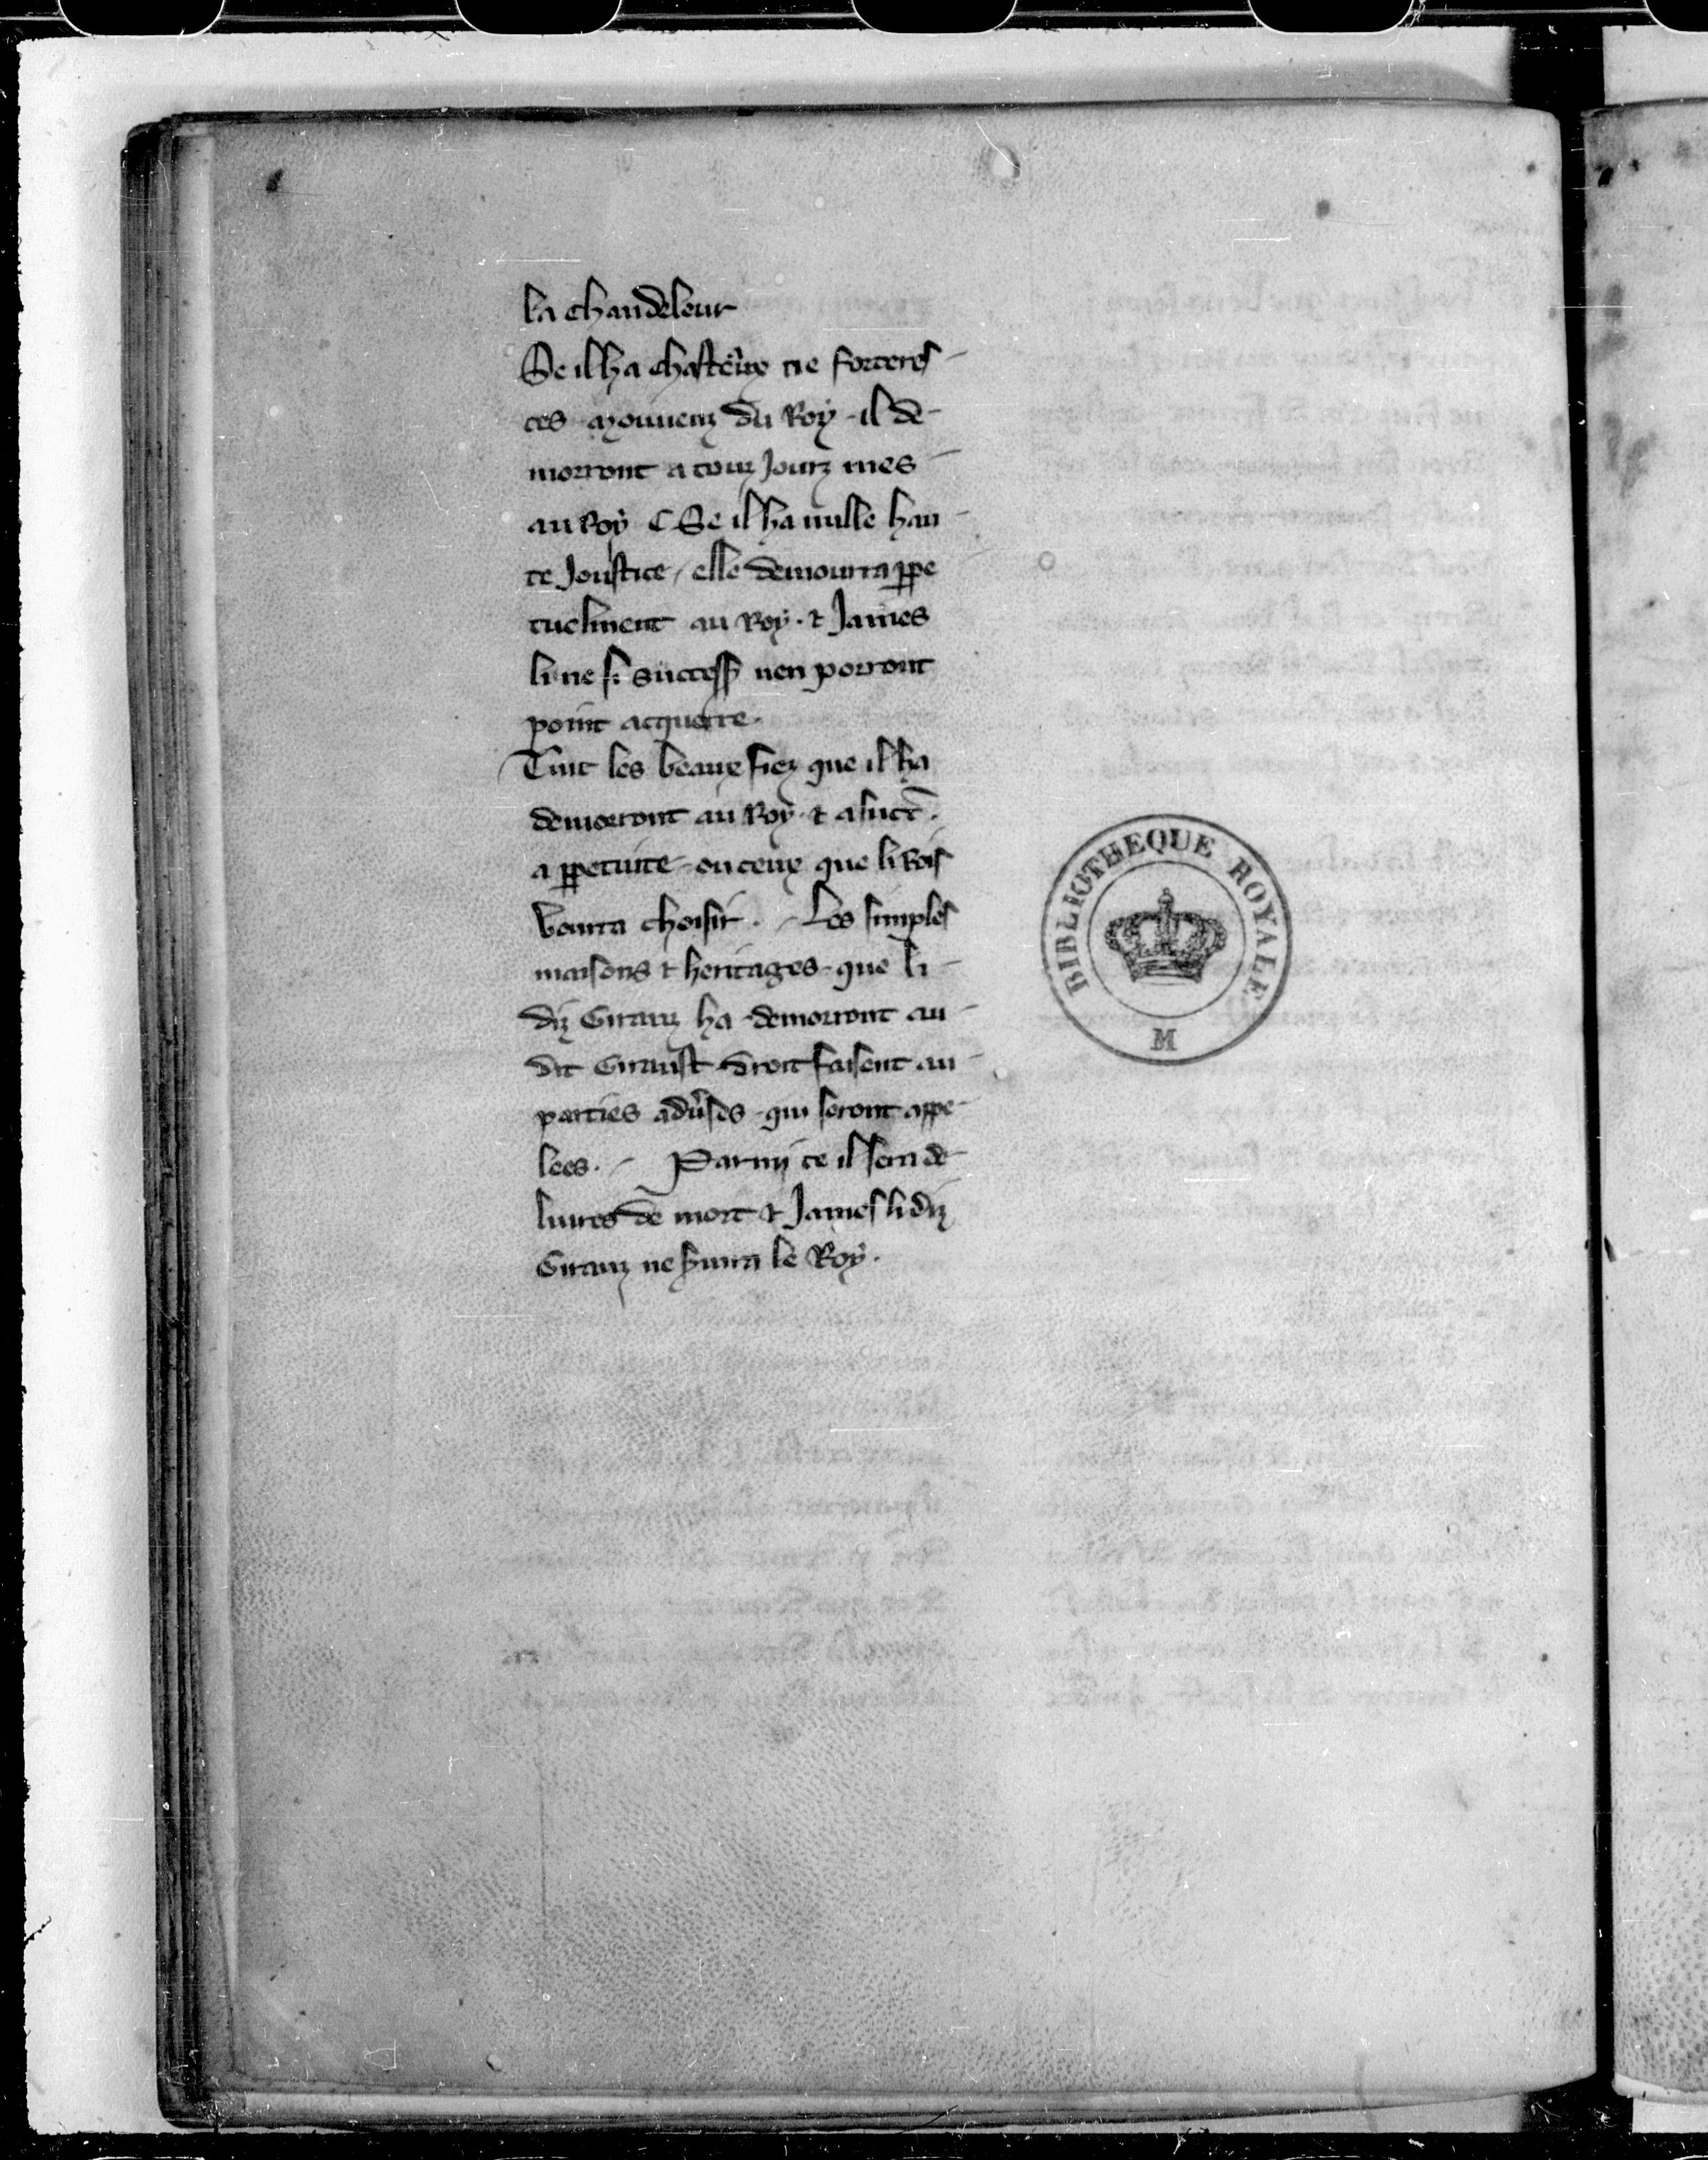 la chandeleur
Se il ha chasteux ne forteres-
ces mouvenz du Roy il de-
morront a touz jourz mes
au Roy C Se il ha nulle hau-
te joustice / elle demourra ppe
tuelment au Roy. ⁊ james
li ne s. success nen porront
point acquerre.
Tuit les beaux fiez que il ha
demorront au Roy ⁊ a succ.
a ppetuite ou ceux que li Rois
vourra choisir. Les simples
maisons ⁊ heritages que li
diz Girauz ha demorront au
dit Giraust droit faisent au
parties aduses qui seront appe-
lees. Parmi ce il sera de-
livres de mort ⁊ james li diz
Girauz ne suira le Roy.
BIBLIOTHEQUE ROYALE
M